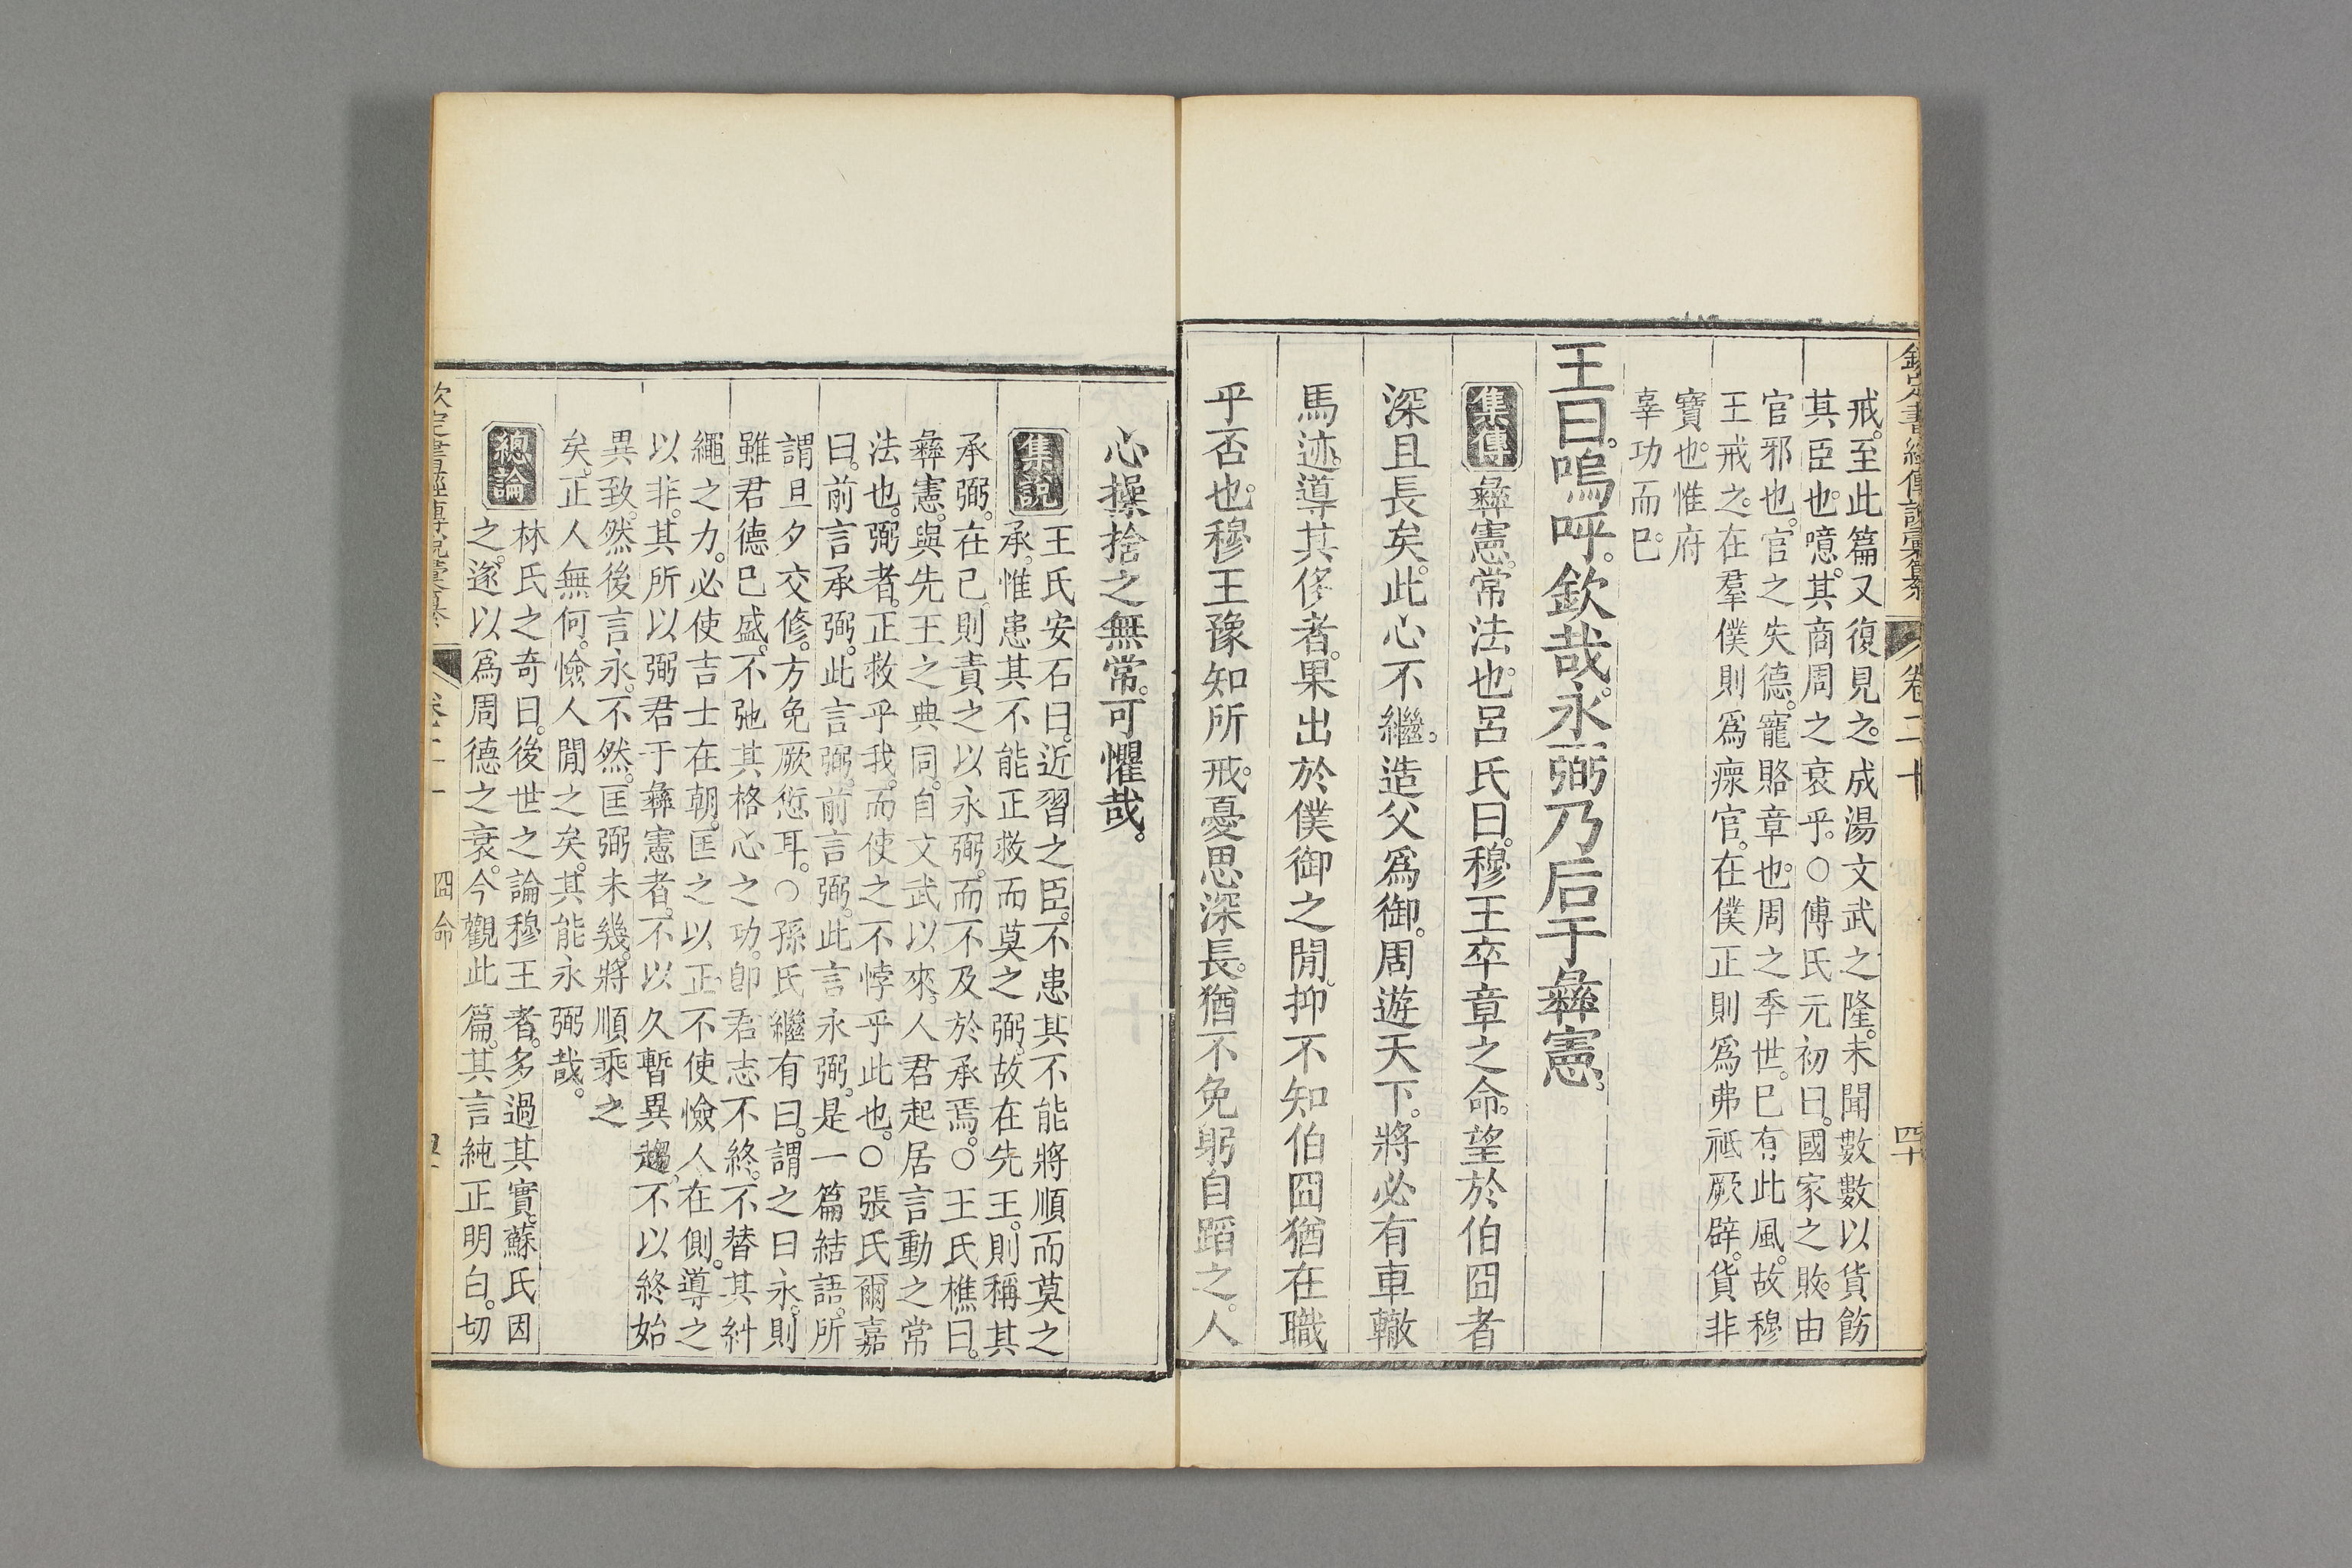 欽定書經傳說彙纂 卷二十 四十
戒。至此篇又復見之。成湯文武之隆。未聞數數以貨飭
其臣也。噫。其商周之衰乎。○傅氏元初曰。國家之敗。由
官邪也。官之失德。寵賂章也。周之季世。已有此風。故穆
王戒之。在羣僕則爲瘝官。在僕正則爲弗祗厥辟。貨非
寶也。惟府
辜功而已。
王曰。嗚呼。欽哉。永弼乃后于彝憲。
集傳 彝憲。常法也。呂氏曰。穆王卒章之命。望於伯冏者
深且長矣。此心不繼。造父爲御。周遊天下。將必有車轍
馬迹。導其侈者。果出於僕御之閒。抑不知伯冏猶在職
乎否也。穆王豫知所戒。憂思深長。猶不免躬自蹈之。人
心操捨之無常。可懼哉。
集說 王氏安石曰。近習之臣。不患其不能將順而莫之
承。惟患其不能正救而莫之弼。故在先王。則稱其
承弼。在己。則責之以永弼。而不及於承焉。○王氏樵曰。
彝憲。與先王之典同。自文武以來。人君起居言動之常
法也。弼者。正救乎我。而使之不悖乎此也。○張氏爾嘉
曰。前言承弼。此言弼。前言弼。此言永弼。是一篇結語。所
謂旦夕交修。方免厥愆耳。○孫氏繼有曰。謂之曰永。則
雖君德已盛。不弛其格心之功。卽君志不終。不替其糾
繩之力。必使吉士在朝。匡之以正。不使憸人在側。導之
以非。其所以弼君于彝憲者。不以久暫異趨。不以終始
異致。然後言永。不然。匡弼未幾。將順乘之
矣。正人無何。憸人閒之矣。其能永弼哉。
總論 林氏之奇曰。後世之論穆王者。多過其實。蘇氏因
之。遂以爲周德之衰。今觀此篇。其言純正明白。切
欽定書經傳說彙纂 冏命